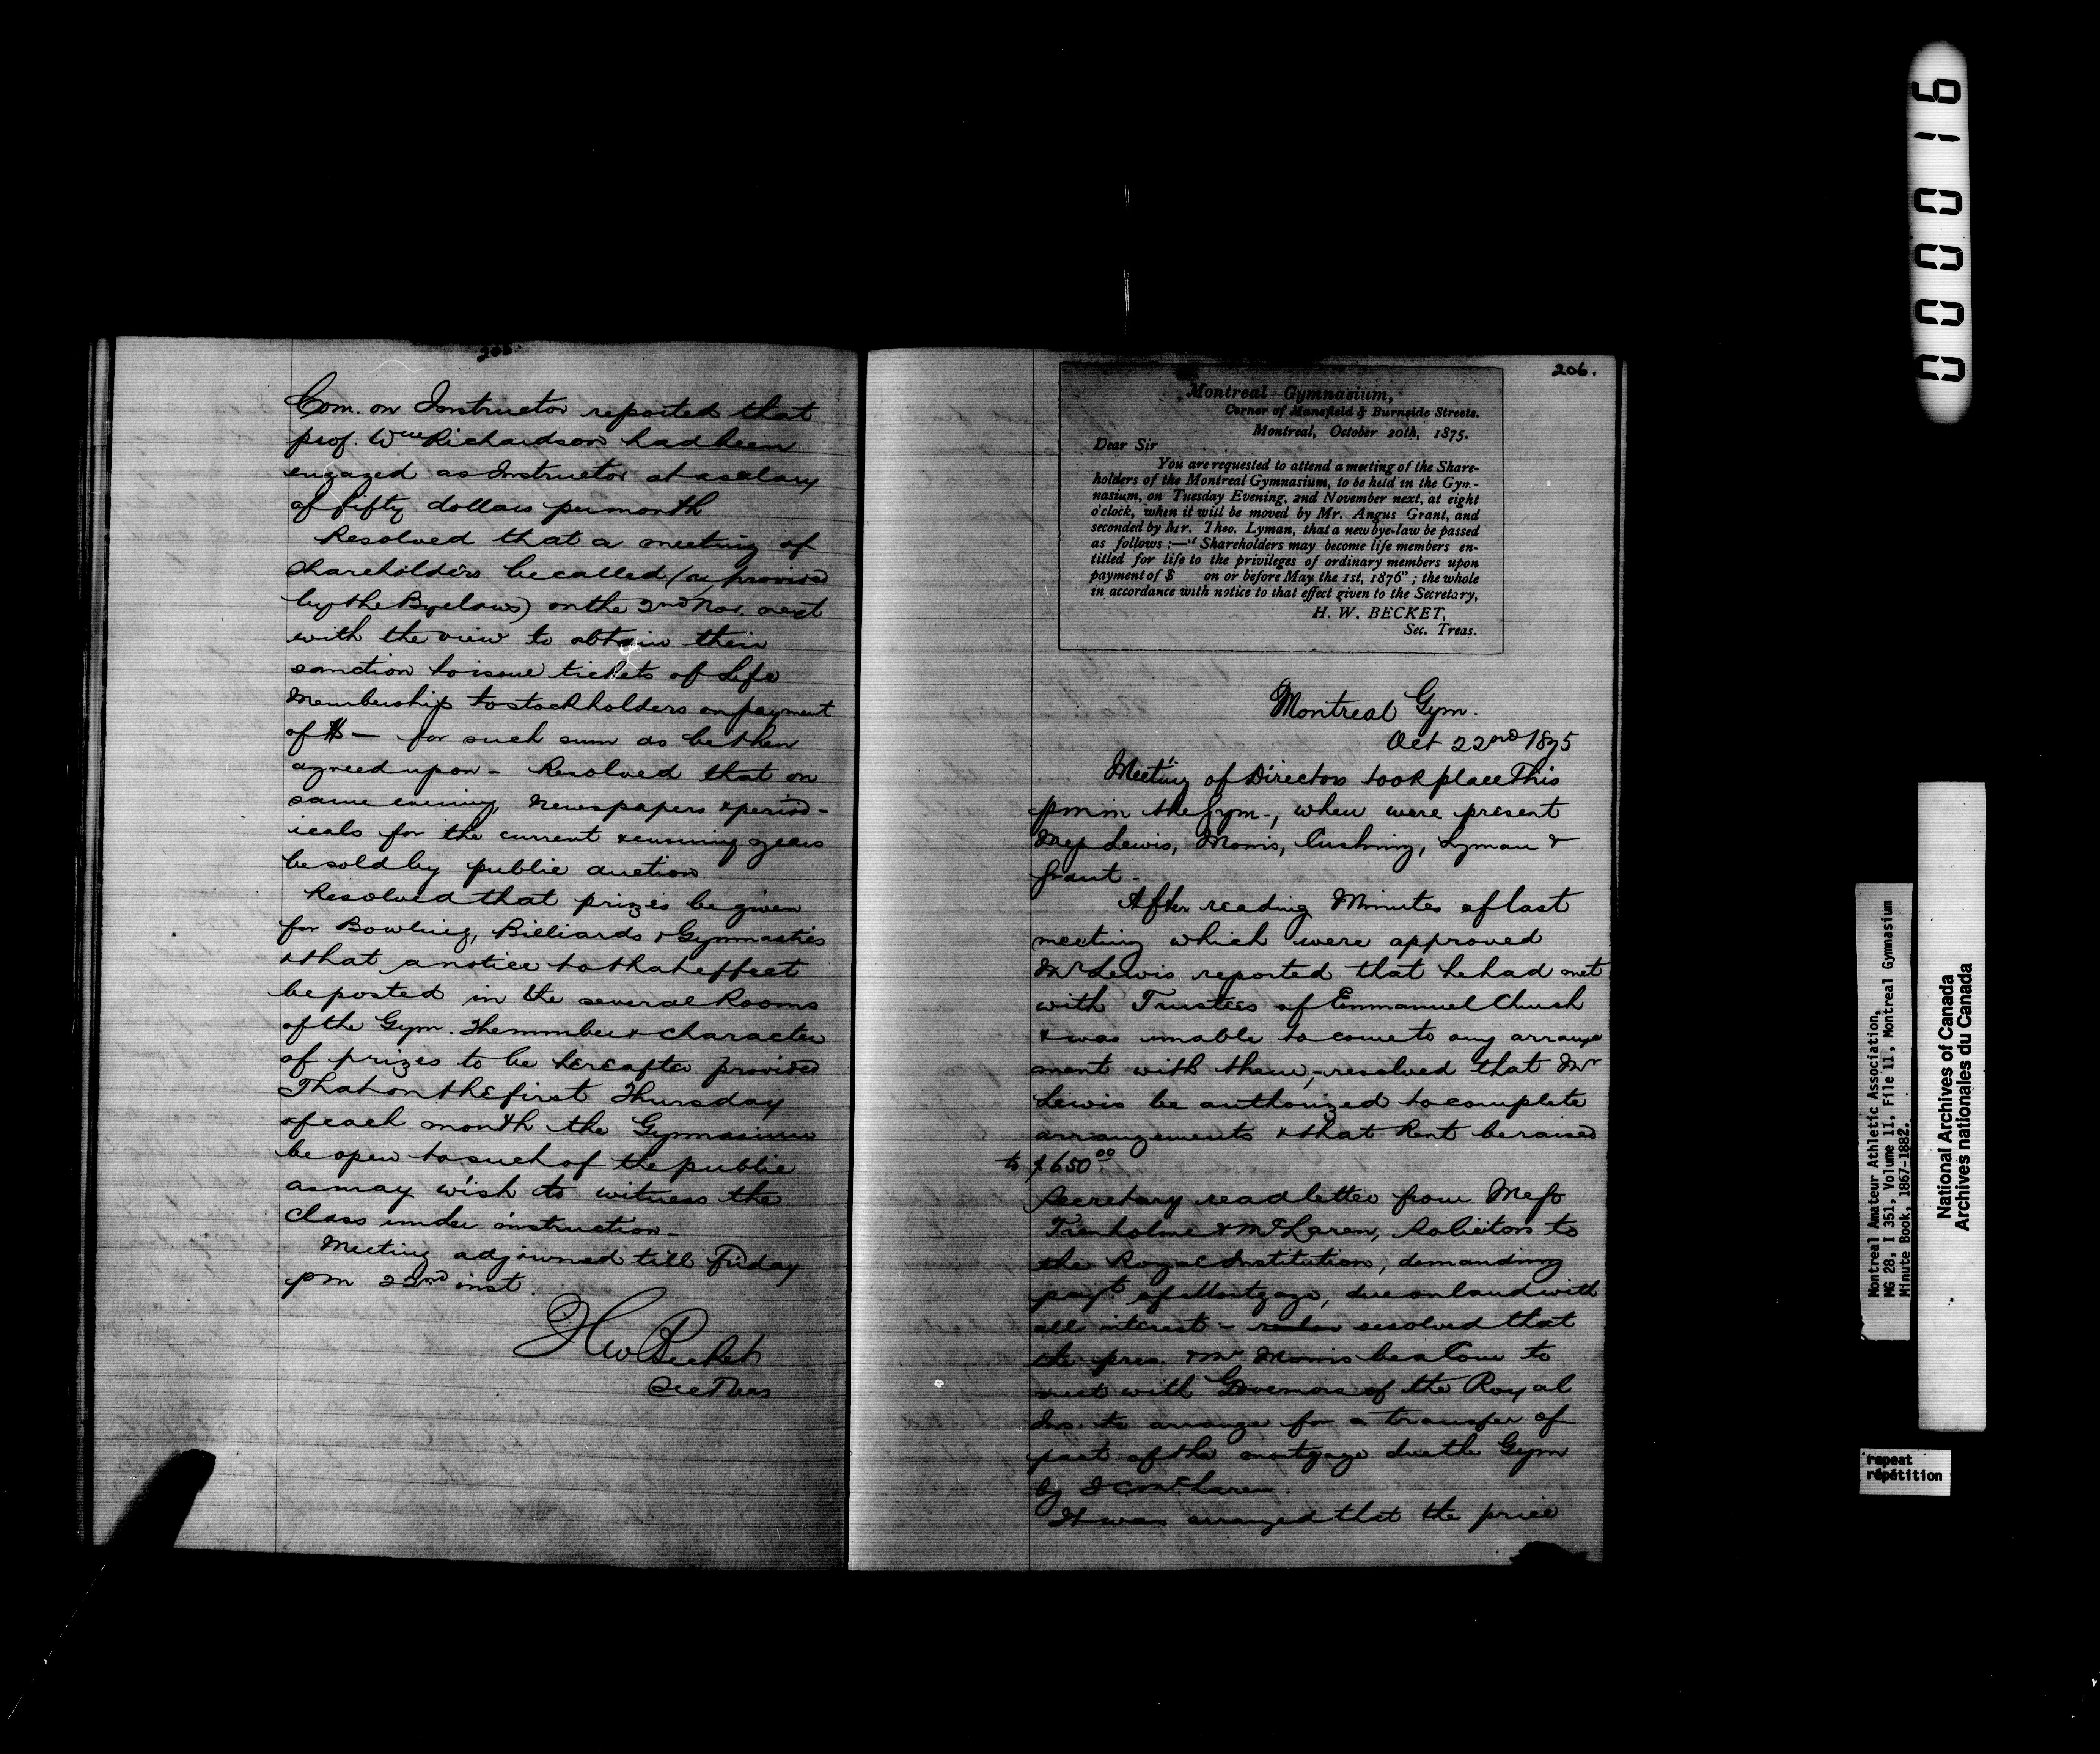 205.
Com. on Instructor reported that
prof. Wm Richardson had been
engaged as Instructor at a salary
of fifty dollars per month
Resolved that a meeting of
shareholders be called (as provided
by the Byelaws) on the 2nd Nov. next
with the view to obtain their
sanction to issue tickets of Life
Membership to stockholders on payment
of $ — for such sum as be then
agreed upon - Resolved that on
same evening, newspapers & period-
icals for the current & ensuing years
be sold by public auction
Resolved that prizes be given
for Bowling, Billiards & Gymnastics
& that a notice to that effect
be posted in the several Rooms
of the Gym. The number & character
of prizes to be hereafter provided
That on the first Thursday
of each month the Gymnasium
be open to such of the public
as may wish to witness the
Class under instruction -
Meeting adjourned till Friday
pm 22nd inst.
H W Becket
Sec Treas
206.
Montreal Gymnasium,
Corner of Mansfield & Burnside Streets.
Montreal, October 20th, 1875.
Dear Sir
You are requested to attend a meeting of the Share-
holders of the Montreal Gymnasium, to be held in the Gym-
nasium, on Tuesday Evening, 2nd November next, at eight
o'clock, when it will be moved by Mr. Angus Grant, and
seconded by Mr. Theo. Lyman, that a new bye-law be passed
as follows :—" Shareholders may become life members en-
titled for life to the privileges of ordinary members upon
payment of $ on or before May the 1st, 1876" ; the whole
in accordance with notice to that effect given to the Secretary,
H. W. BECKET,
Sec. Treas.
Montreal Gym.
Oct 22nd 1875
Meeting of Directors took place This
pm in the Gym., when were present
Mess Lewis, Morris, Cushing, Lyman &
Grant -
After reading Minutes of last
meeting which were approved
Mr Lewis reported that he had met
with Trustees of Emmanuel Church
& was unable to come to any arrange
ment with them, - resolved that Mr
Lewis be authorized to complete
arrangements & that Rent be raised
to $650.00
Secretary read letter from Messrs
Trenholme & McLaren, Solicitors to
the Royal Institution, demanding
payt. of Mortgage, due on land with
all interest - resolved that
the pres. & Mr Morris be a Com to
meet with Governors of the Royal
Ins. to arrange for a transfer of
part of the mortgage due the Gym
by McLaren.
It was arranged that the price
000016
Montreal Amateur Athletic Association,
MG 28, I 351, Volume 11, File 11, Montreal Gymnasium
Minute Book, 1867-1882.
National Archives of Canada
Archives nationales du Canada
repeat
répétition